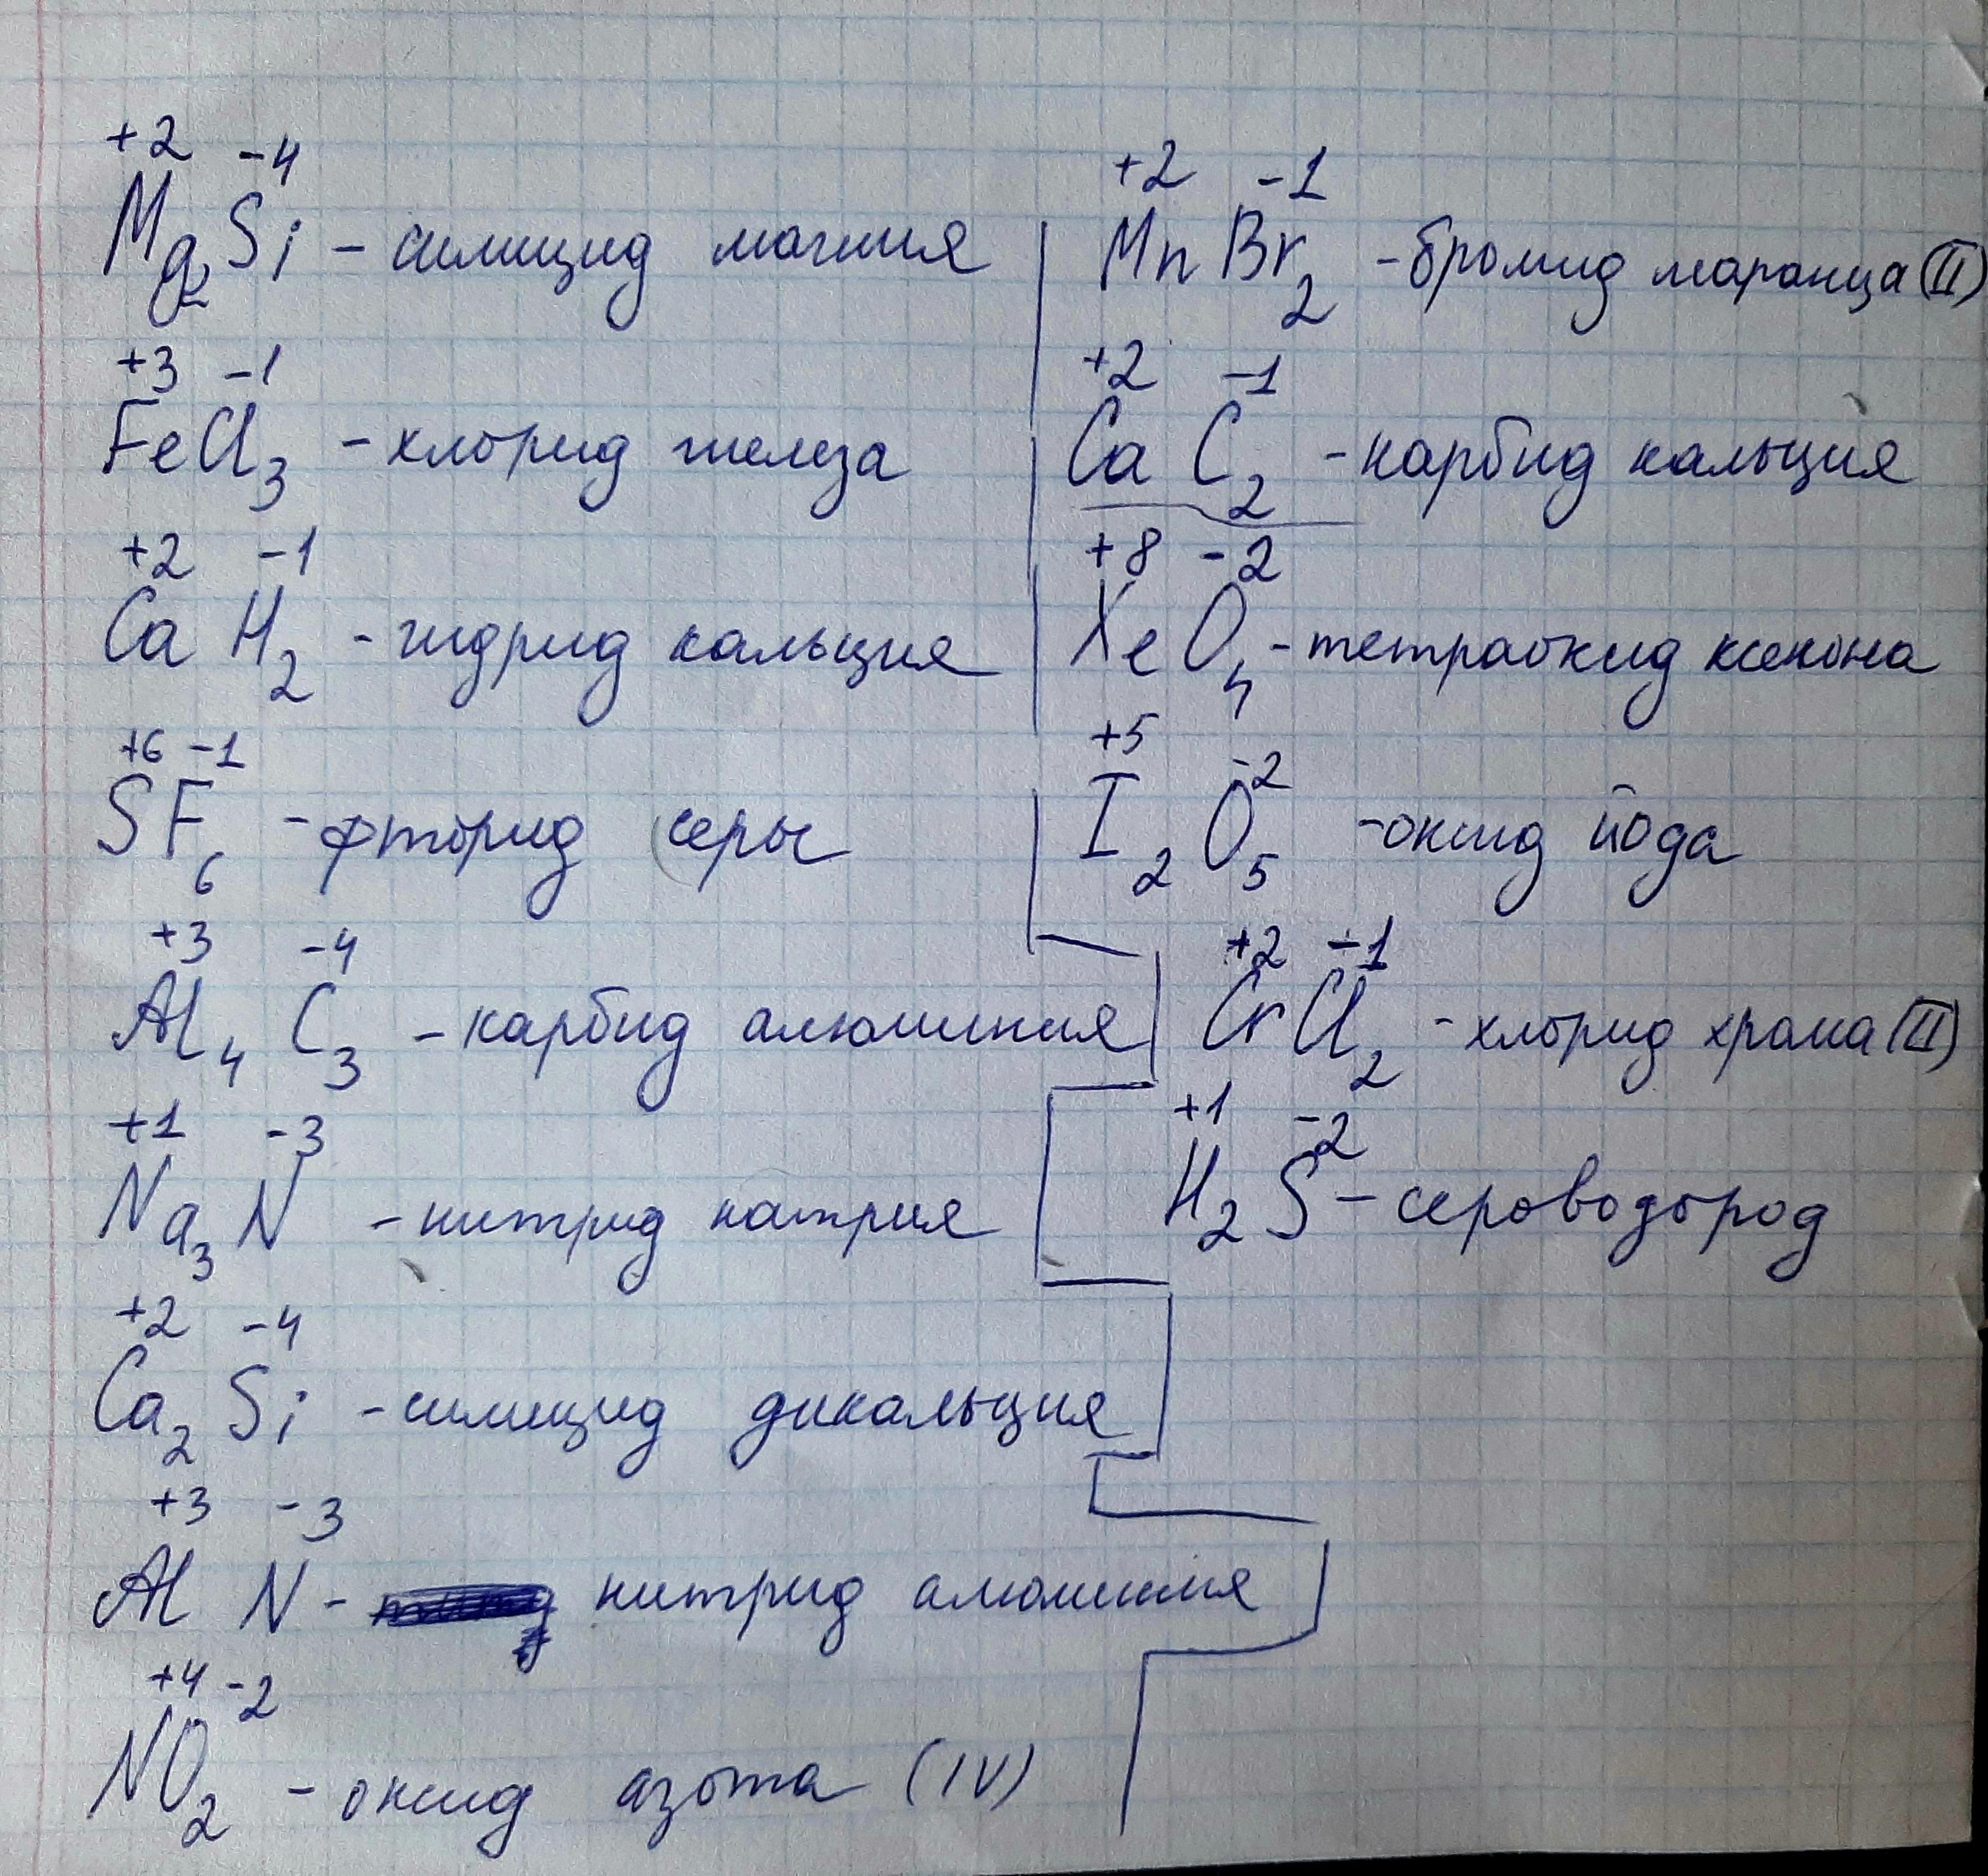 +2 -4
Mg2Si - силицид магния
+3 -1
FeCl3 - хлорид железа
+2 -1
CaH2 - гидрид кальция
+6 -1
SF6 - фторид серы
+3 -4
Al4C3 - карбид алюминия
+1 -3
Na3N - нитрид натрия
+2 -4
Ca2Si - силицид дикальция
+3 -3
AlN - нитрид алюминия
+4 -2
NO2 - оксид азота (IV)
+2 -1
MnBr2 - бромид маранца (II)
+2 -1
CaC2 - карбид кальция
+8 -2
XeO4 - тетраокид ксенона
+5 -2
I2O5 - оксид йода
+2 -1
CrCl2 - хлорид хрома (II)
+1 -2
H2S - сероводород